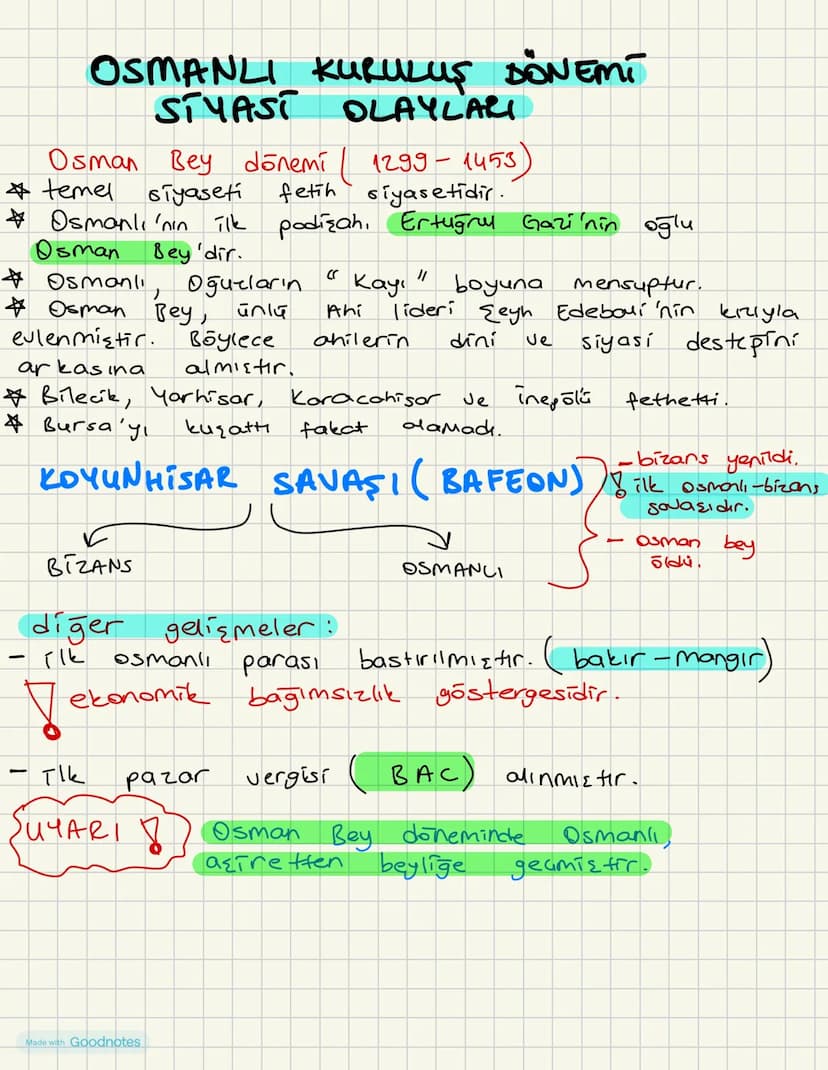 OSMANLI KURULUŞ DÖNEMİ
SİYASİ OLAYLARI
Osman Bey dönemi ( 1299 - 1453)
☆ temel siyaseti fetih siyasetidir.
☆ Osmanlı'nın ilk padişahı Ertuğrul Gazi'nin oğlu
Osman Bey'dir.
☆ Osmanlı, Oğuzların "Kayı" boyuna mensuptur.
☆ Osman Bey, ünlü Ahi lideri Şeyh Edebali'nin kızıyla
evlenmiştir. Böylece ahilerin dini ve siyasi desteğini
arkasına almıştır.
☆ Bilecik, Yarhisar, Karacahisar ve İnegölü fethetti.
☆ Bursa'yı kuşattı fakat alamadı.
KOYUNHİSAR SAVAŞI ( BAFEON)
- bizans yenildi.
! ilk osmanlı-bizans
savaşıdır.
- osman bey
öldü.
BİZANS
OSMANLI
diğer gelişmeler:
- ilk osmanlı parası bastırılmıştır. ( bakır - mangır)
! ekonomik bağımsızlık göstergesidir.
- ilk pazar vergisi ( BAC) alınmıştır.
UYARI !
Osman Bey döneminde Osmanlı,
aşiretten beyliğe geçmiştir.
Made with Goodnotes